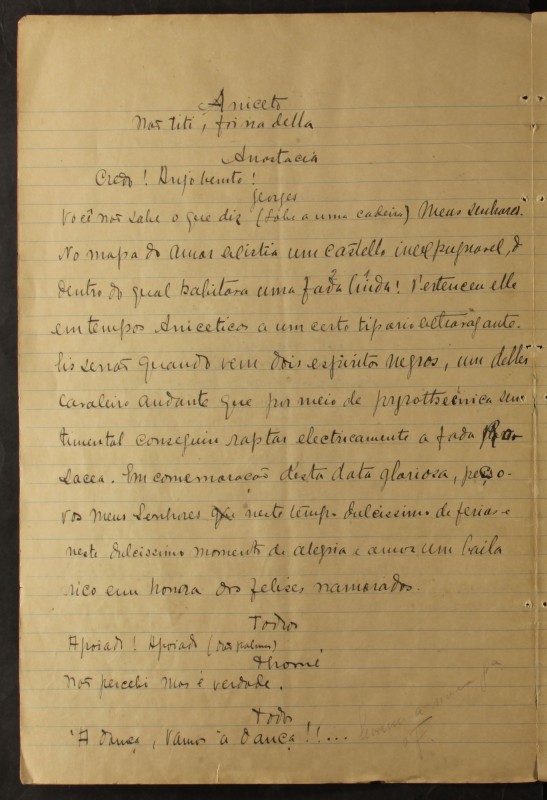 Aniceto
Nos Titi, foi na della
Anastacia
Credo! Anjo bento!
Georges
Você não sabe o que diz (Sobe a uma cadeira) Meus Senhores.
No mapa do amor existia um castello inexpugnavel, d
dentro do qual habitava uma fada linda! Pertenceu elle
em tempos Aniceticos a um certo tipano extravagante.
Eis senão quando vem dois espiritos negros, um delles
cavaleiro andante que por meio de pyrothecnica sen
timental conseguiu raptar electricamente a fada
Lacea. Em comemoração desta data gloriosa, peço-
vos meus Senhores neste tempo dulcissimo de ferias e
neste dulcissimo momento de alegria e amor um baila
rico em honra dos felises namorados.
Todos
Apoiado! Apoiado (dão palmas)
Thomé
Não percebi mas é verdade.
Todos
À dança, Vamos à dança!!...